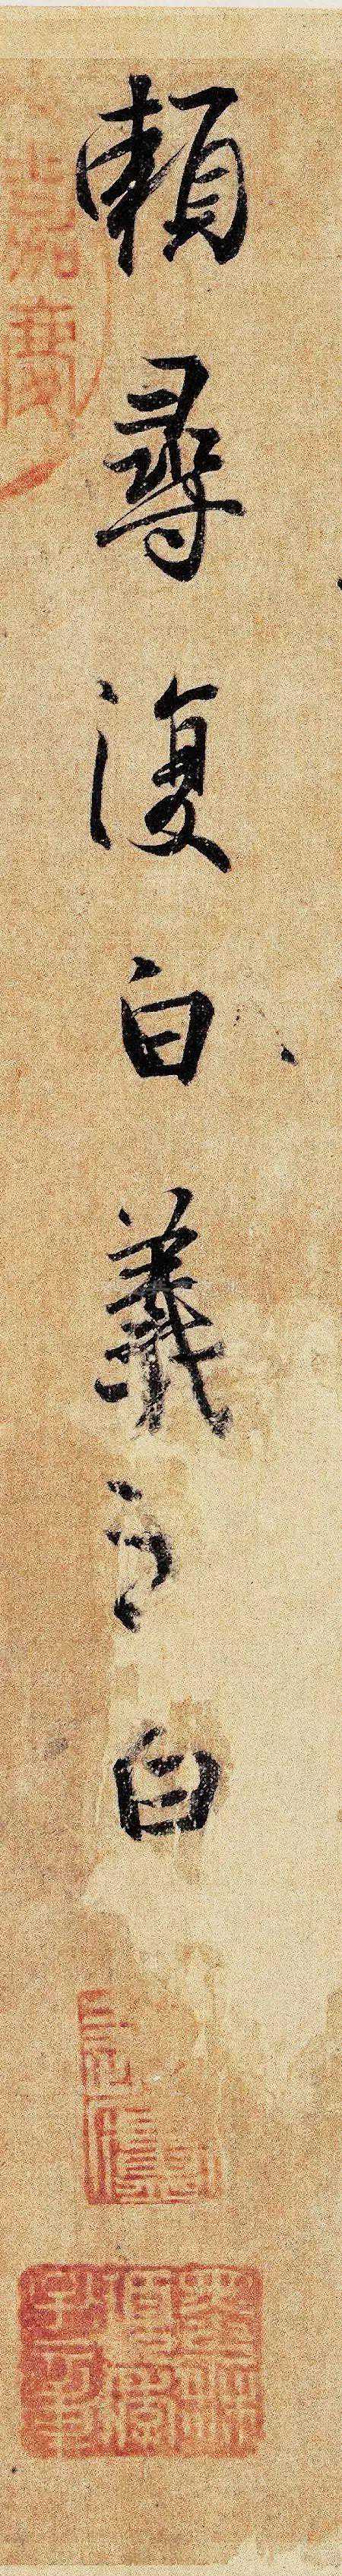 賴尋復白羲之白